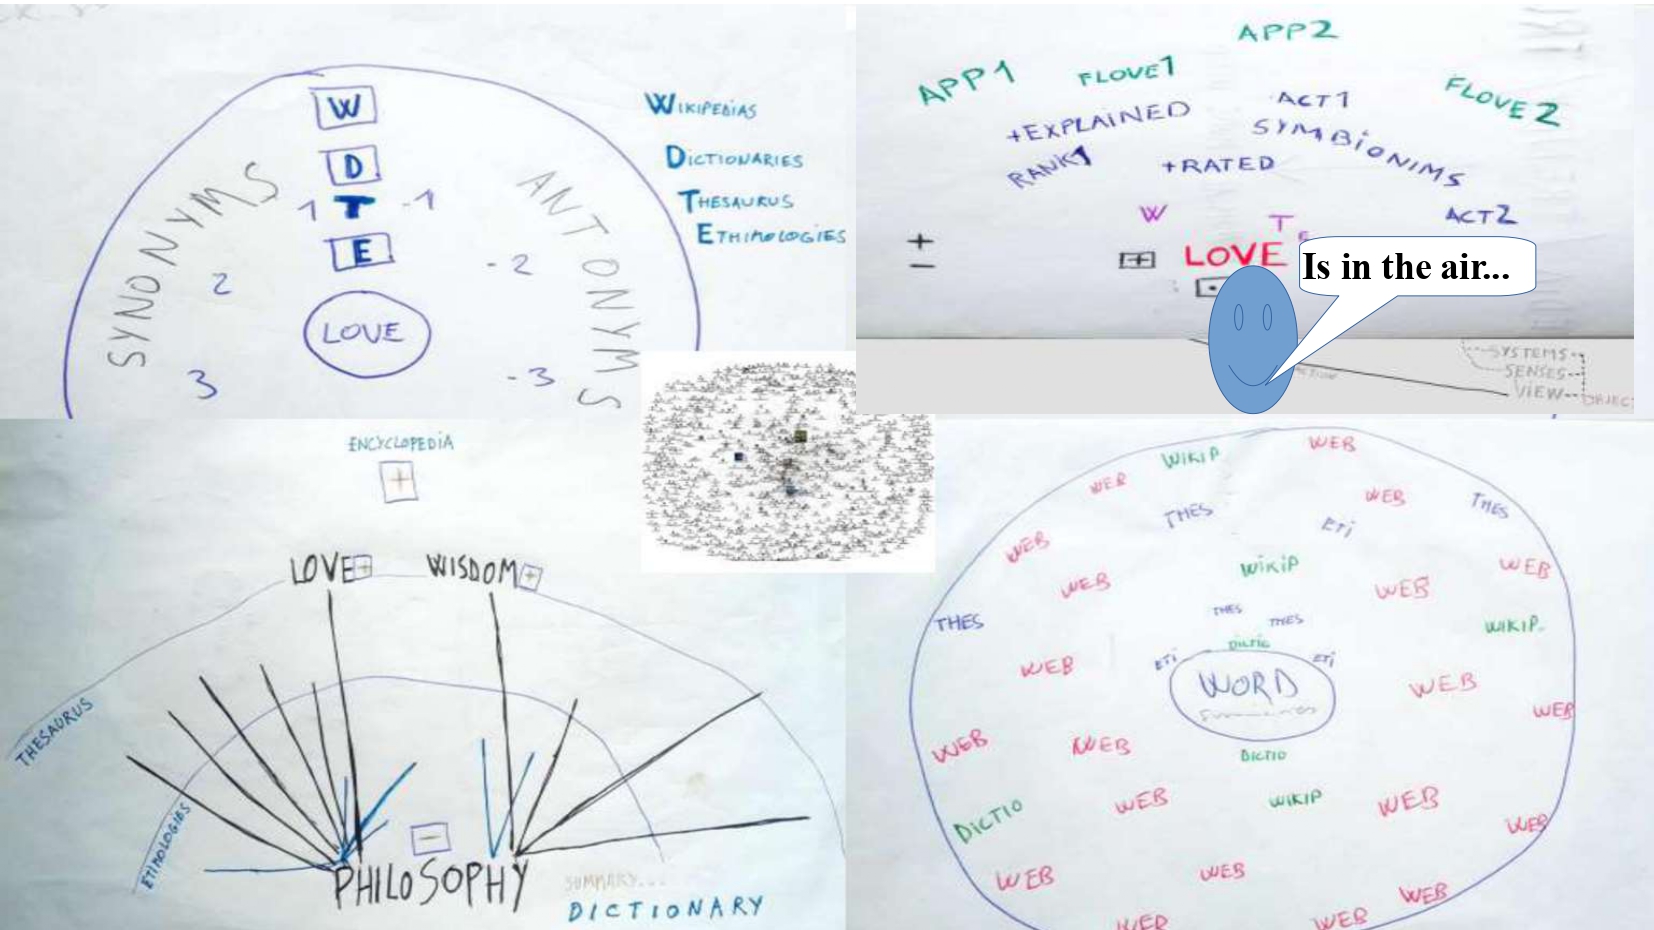 W
WIKIPEDIAS
D
DICTIONARIES
1 T -1
THESAURUS
E
ETHIMOLOGIES
SYNONYMS
ANTONYMS
2 -2
LOVE
3 -3
APP2
APP1 FLOVE1 FLOVE2
+EXPLAINED ACT1
SYMBIONIMS
RANK1 +RATED
W T ACT2
E
+ LOVE
-
+
Is in the air...
SYSTEMS
SENSES
VIEW
ENCYCLOPEDIA
+
LOVE + WISDOM +
THESAURUS
ETIMOLOGIES
-
PHILOSOPHY
SUMMARY...
DICTIONARY
WEB
WIKIP
WEB WEB THES
THES ETI
WEB
WIKIP WEB
WEB WEB
THES THES
THES WIKIP
DICTIO
ETI ETI
WEB WORD WEB
WEB
WEB WEB DICTIO
WEB WIKIP WEB
DICTIO WEB
WEB WEB
WEB
WEB WEB